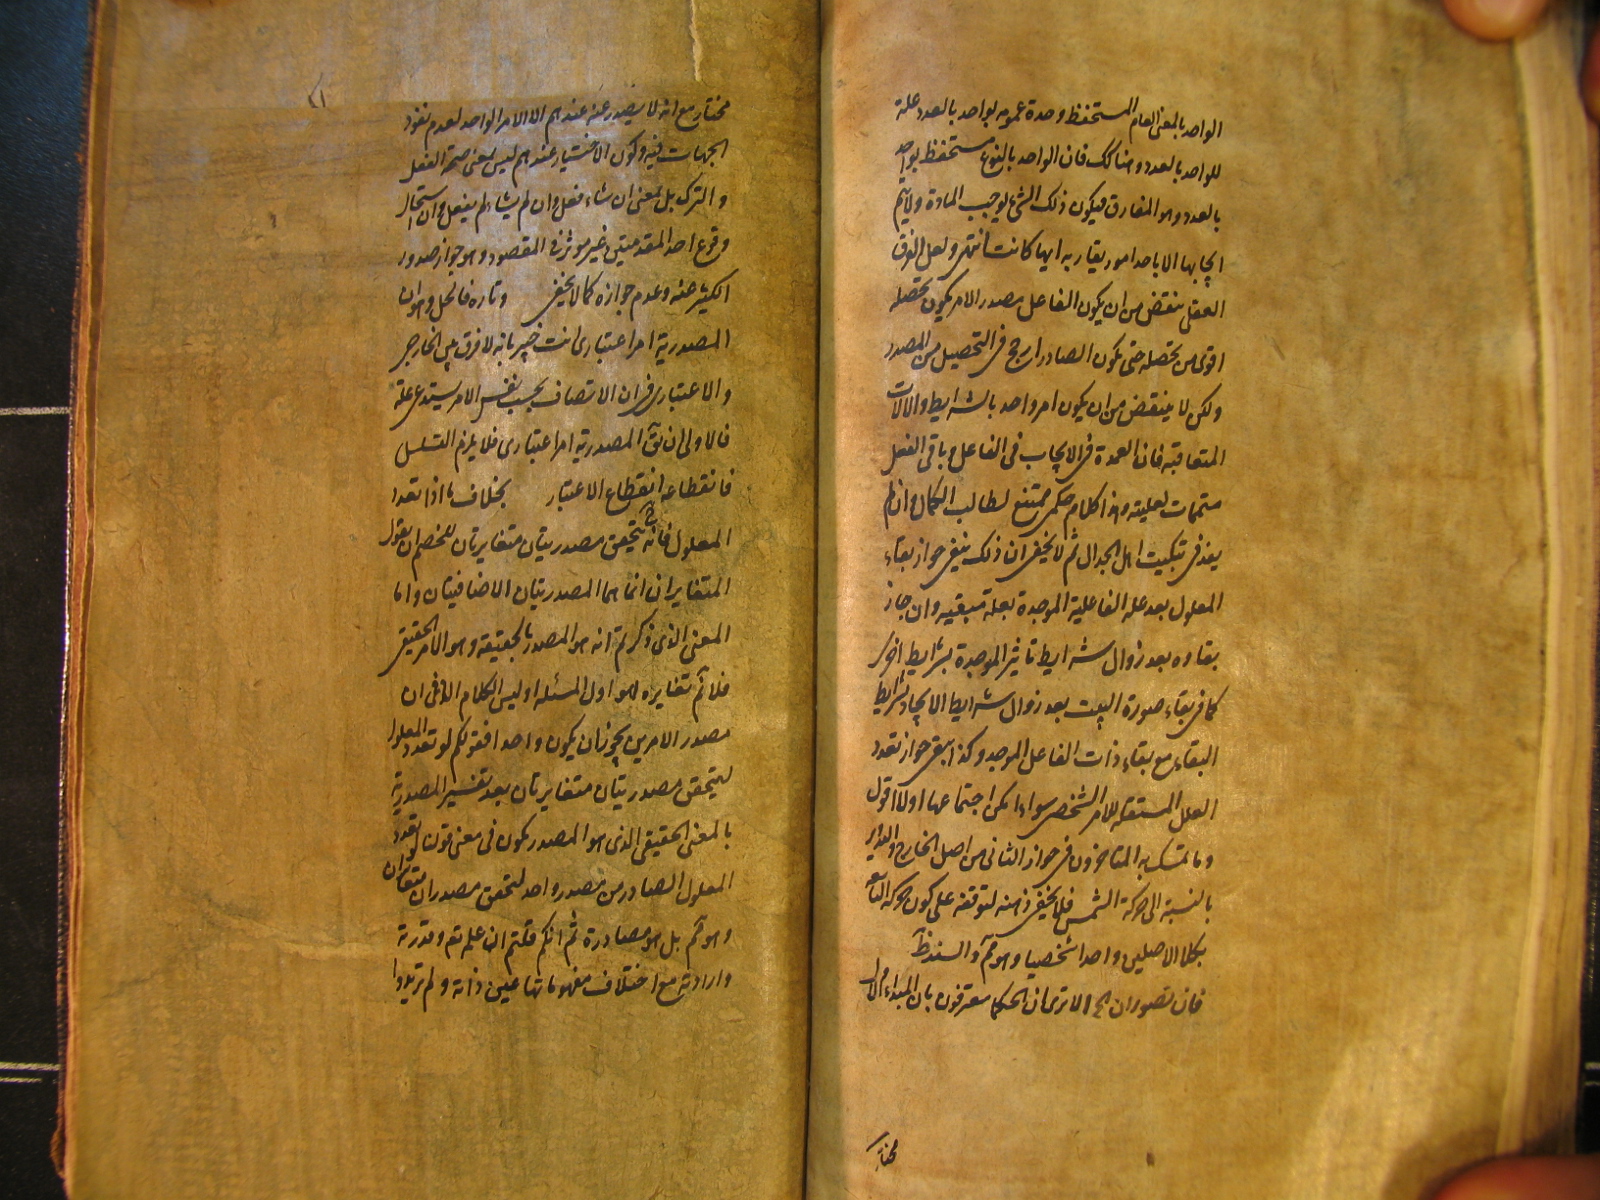 الواحد بالمعنى العام المستحفظ وحدة عمومه بواحد بالعدد علة
للواحد بالعدد وهنا كك فان الواحد بالنوع مستحفظ بواحد
بالعدد وهو المفارق فيكون ذلك الشئ يوجب المادة ولا يتم
ايجابها الا باحد امور يقارنه ايها كانت انتهى ولعل الفرق
العقلى ينقض من ان يكون الفاعل مصدر الامر يكون تحصله
اقوى من تحصله حتى يكون الصادر ارجح فى التحصيل من المصدر
ولكن لا ينقض من ان يكون امر واحد بالشرايط والالات
المتعاقبة فان العمدة فى الايجاب فى الفاعل وباقى الفعل
متممات لعليته وهذا كلام حكمى ممتنع لطالب الكمال وان لم
يفد فى تبكيت اهل الجدال ثم لا يخفى ان ذلك ينفى جواز بقاء
المعلول بعد علة الفاعلية الموجدة بعلة مبقية وان جاز
بقاوه بعد زوال شرايط تاثير الموجدة بشرايط اخرى
كما فى بقاء صورة البيت بعد زوال شرايط الايجاد بشرايط
البقاء مع بقاء ذات الفاعل الموجد وكذا ينفى جواز تعدد
العلل المستقلة للامر الشخصى سواء امكن اجتماعها اولا اقول
وما تمسك به المتاخرون فى جواز الثانى من اصل الخارج والتدوير
بالنسبة الى حركة الشمس فلا يخفى وهنه لتوقفه على كون حركة
بكلا الاصلين واحدا شخصيا وهو مم والسند ظ
فان تصور ان الخ الا ترى ان الحكما معترفون بان المبداء الاول
مختار
مختار مع انه لا يصدر عنه عندهم الا الامر الواحد لعدم نفوذ
الجهات فيه وكون الاختيار عندهم ليس بمعنى صحة الفعل
والترك بل بمعنى ان شاء فعل وان لم يشاء لم يفعل وان استحال
وقوع احد المقدمتين غير موثر فى المقصود وهو جواز صدور
الكثير عنه وعدم جوازه كما لا يخفى وتارة فالحل وهو ان
المصدرية امر اعتبارى انت خبير بانه لا فرق بين الخارجى
والاعتبارى فى ان الاتصاف بحسب نفس الامر يستدعى علة
فالاولى ان يق المصدرية امر اعتبارى فلا يلزم التسلسل
فانقطاعه انقطاع الاعتبار بخلاف ما اذا تعدد
المعلول فانه ح يتحقق مصدريتان متغايرتان للخصم ان يقول
المتغايران انما هما المصدريتان الاضافيتان واما
المعنى الذى ذكرتم انه هو المصدر بالحقيقة وهو الامر الحقيقى
فلا ثم تغايره هو اول المسئلة او ليس الكلام الا فى ان
مصدر الامرين يجوز ان يكون واحدا فقولكم لو تعدد المعلول
ليتحقق مصدريتان متغايرتان بعد تفسير المصدرية
بالمعنى الحقيقى الذى هو المصدر يكون فى معنى قولنا لو تعدد
المعلول الصادر من مصدر واحد لتحقق مصدران متغايران
وهو مم بل هو مصادرة ثم انكم قلتم ان علمه تع وقدرته
وارادته مع اختلاف مفهوماتها عين ذاته ولم تريدوا